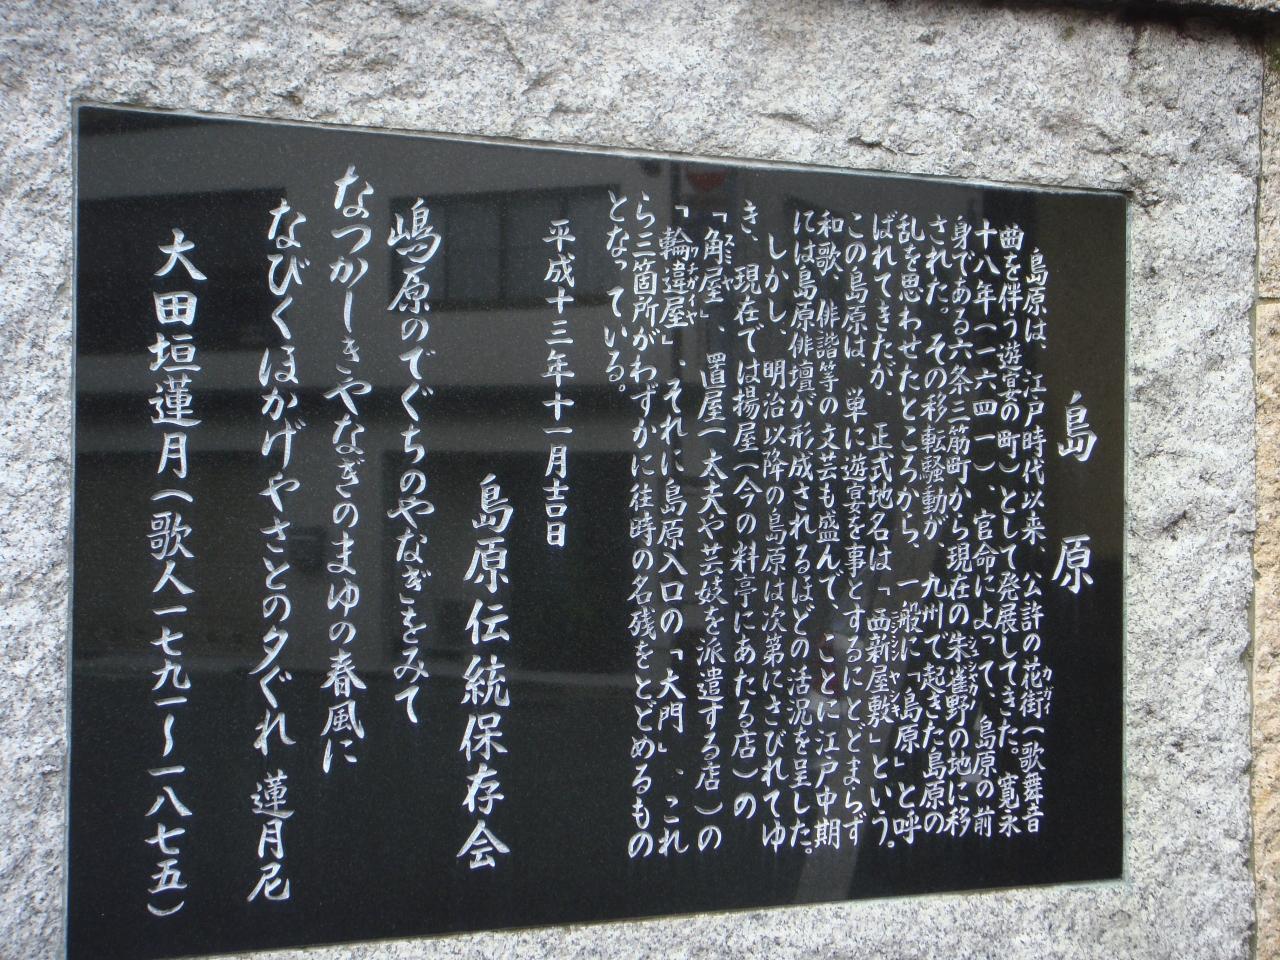 島原
島原は、江戸時代以来、公許の花街(歌舞音
曲を伴う遊宴の町)として発展してきた。寛永
十八年(一六四一)、官命によって、島原の前
身である六条三筋町から現在の朱雀野の地に移
された。その移転騒動が、九州で起きた島原の
乱を思わせたところから、一般に「島原」と呼
ばれてきたが、正式地名は「西新屋敷」という。
この島原は、単に遊宴を事とするにとどまらず
和歌、俳諧等の文芸も盛んで、ことに江戸中期
には島原俳壇が形成されるほどの活況を呈した。
しかし、明治以降の島原は次第にさびれてゆ
き、現在では揚屋(今の料亭にあたる店)の
「角屋」、置屋(太夫や芸妓を派遣する店)の
「輪違屋」、それに島原入口の「大門」、これ
ら三箇所がわずかに往時の名残をとどめるもの
となっている。
平成十三年十一月吉日
島原伝統保存会
嶋原のでぐちのやなぎをみて
なつかしきやなぎのまゆの春風に
なびくほかげやさとの夕ぐれ 蓮月尼
大田垣蓮月(歌人一七九一〜一八七五)